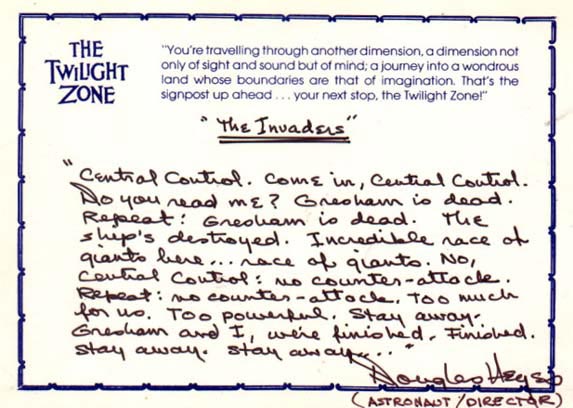 THE
TWILIGHT
ZONE
"You're travelling through another dimension, a dimension not
only of sight and sound but of mind; a journey into a wondrous
land whose boundaries are that of imagination. That's the
signpost up ahead . . . your next stop, the Twilight Zone!"
"The Invaders"
"Central Control. Come in, Central Control.
Do you read me? Gresham is dead.
Repeat: Gresham is dead. The
ship's destroyed. Incredible race of
giants here... race of giants. No,
Central Control: no counter-attack.
Repeat: no counter-attack. Too much
for us. Too powerful. Stay away.
Gresham and I, we're finished. Finished.
Stay away. Stay away...."
Douglas Heyes
(ASTRONAUT/DIRECTOR)